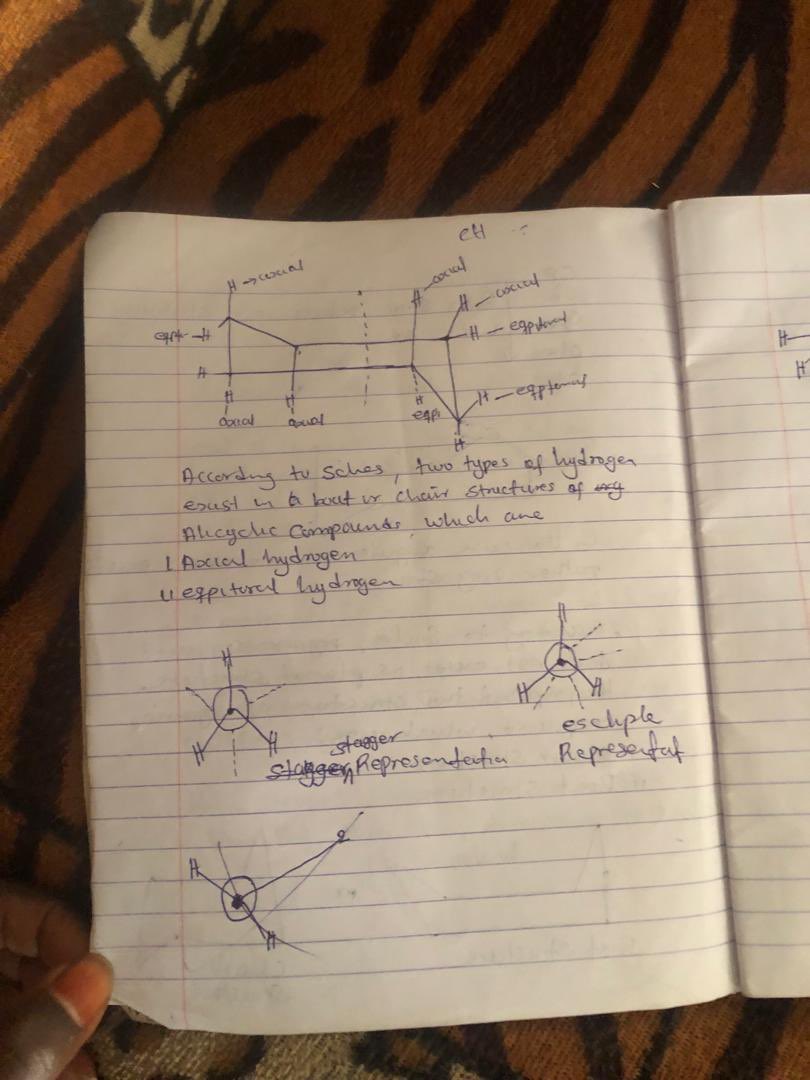 CH
H → axial
H - axial
H - axial
eqpt - H
H - eqpitoral
H
H - eqptorial
H
H
H
axial
axial
eqpi
H
According to Sches, two types of hydrogen
exist in a boat or chair structures of
Alicyclic Compounds, which are
I Axial hydrogen
II eqpitoral hydrogen
H
H
H
H
H
H
H
stagger
Representation
eschple
Representat
H
H
H